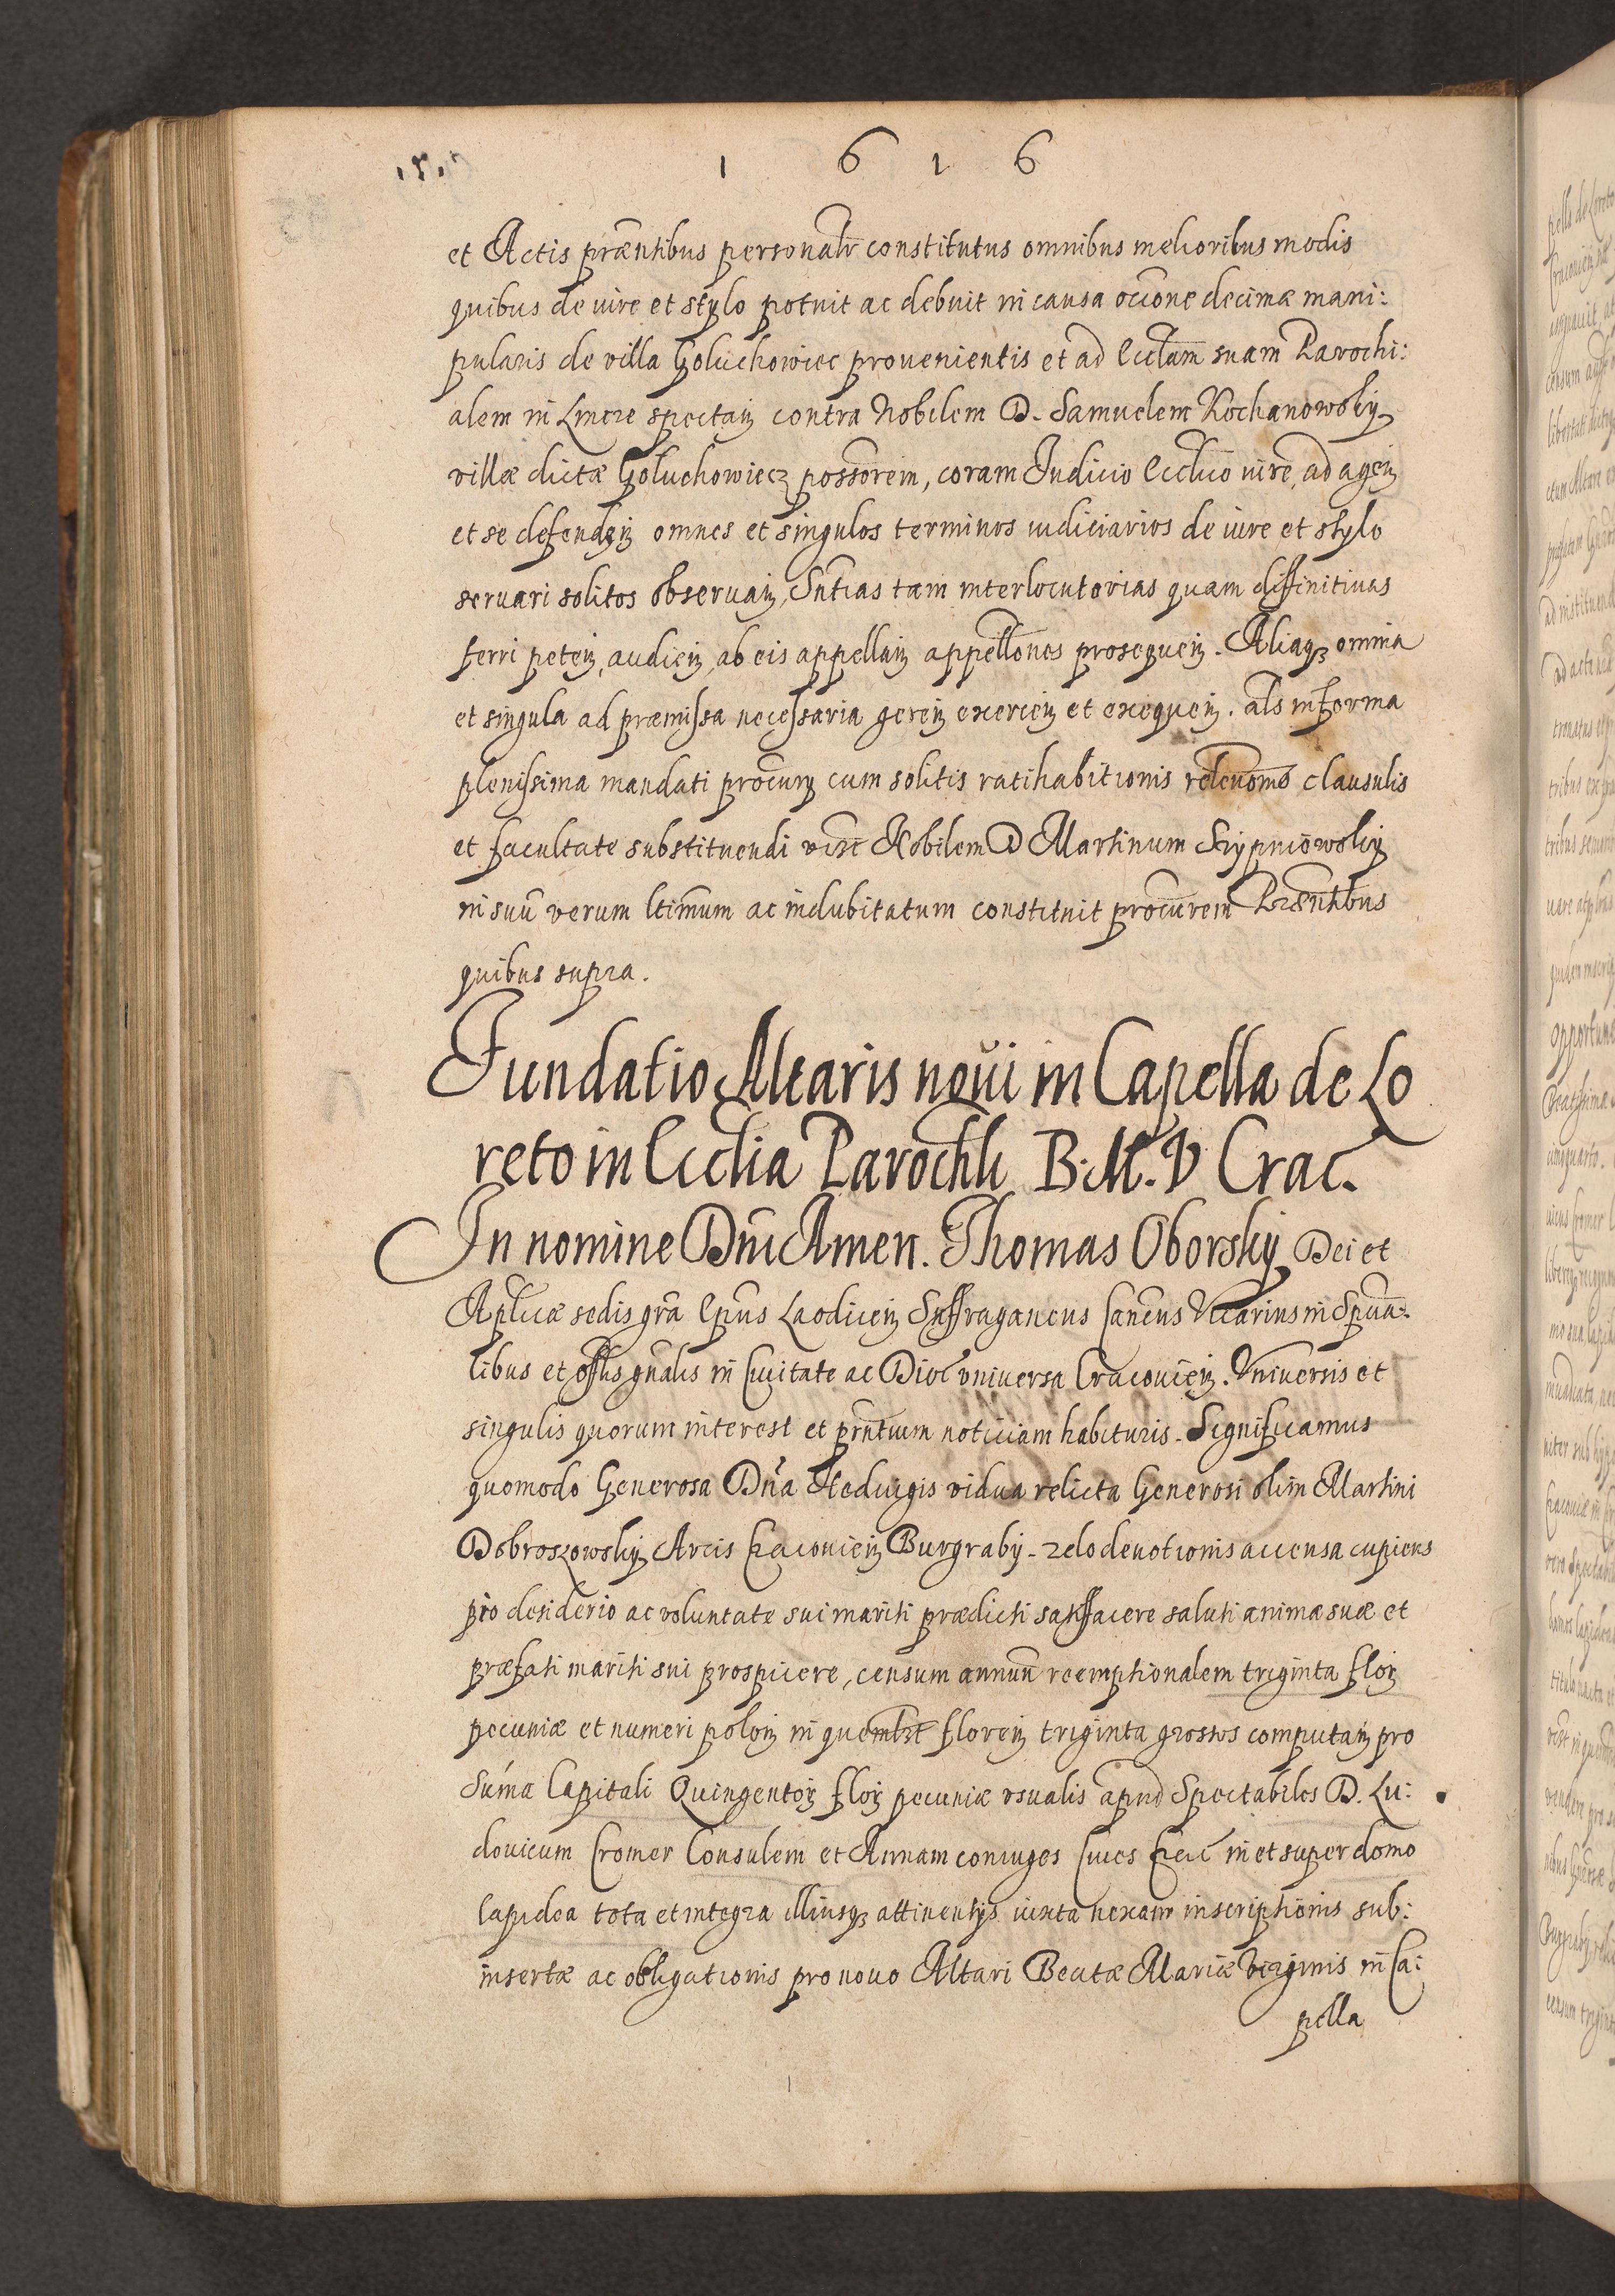 1 6 1 6
et Actis præntibus personalr constitutus omnibus melioribus modis
quibus de iure et stylo potuit ac debuit in causa occone decimæ mani:
pularis de villa Goluchowiec prouenientis et ad Ecclam suam Parochi:
alem in spectan contra Nobilem D. Samuelem Kochanowsky
villæ dictæ Goluchowiecz possorem, coram Iudicio Ecclico iure, ad agen
et se defenden omnes et singulos terminos iudiciarios de iure et stylo
seruari solitos obseruan, Sntias tam interlocutorias quam diffinitiuas
ferri peten, audien, ab eis appellan appellones prosequen. Aliaqz omnia
et singula ad præmissa necessaria geren exercen et exequen. als in forma
plenissima mandati procury cum solitis ratihabitionis releuonis clausulis
et facultate substituendi vidzt Nobilem D Martinum Skrypniowsky
in suū verum ltimum ac indubitatum constituit procurem Præntibus
quibus supra.
Fundatio Altaris noui in Capella de Lo
reto in Ecclia Parochli B. M. V Crac.
In nomine Dni Amen. Thomas Oborsky Dei et
Aplicæ sedis gra Epus Laodicen Suffraganeus Cancus Vicarius in Spuã:
libus et offlis gnalis in Ciuitate ac Dioc vniuersa Cracouien. Vniuersis et
singulis quorum interest et prntium noticiam habituris. Significamus
quomodo Generosa Dna Heduigis vidua relicta Generosi olim Martini
Dobroszowsky Arcis Cracouien Burgraby. zelo deuotionis accensa cupiens
pio desiderio ac voluntate sui mariti prædicti satisfacere saluti animæ suæ et
præfati mariti sui prospicere, censum annuū reemptionalem triginta flor
pecuniæ et numeri polon in quemlzt floren triginta grossos computan pro
Súma Capitali Quingentor flor pecuniæ vsualis apud Spectabiles D. Lu:
douicum Cromer Consulem et Annam coniuges Ciues Crac in et super domo
lapidea tota et integra illiusqz attinentijs iuxta nexam inscriptionis sub:
insertæ ac obligationis pro nouo Altari Beatæ Mariæ Virginis in Ca:
pella